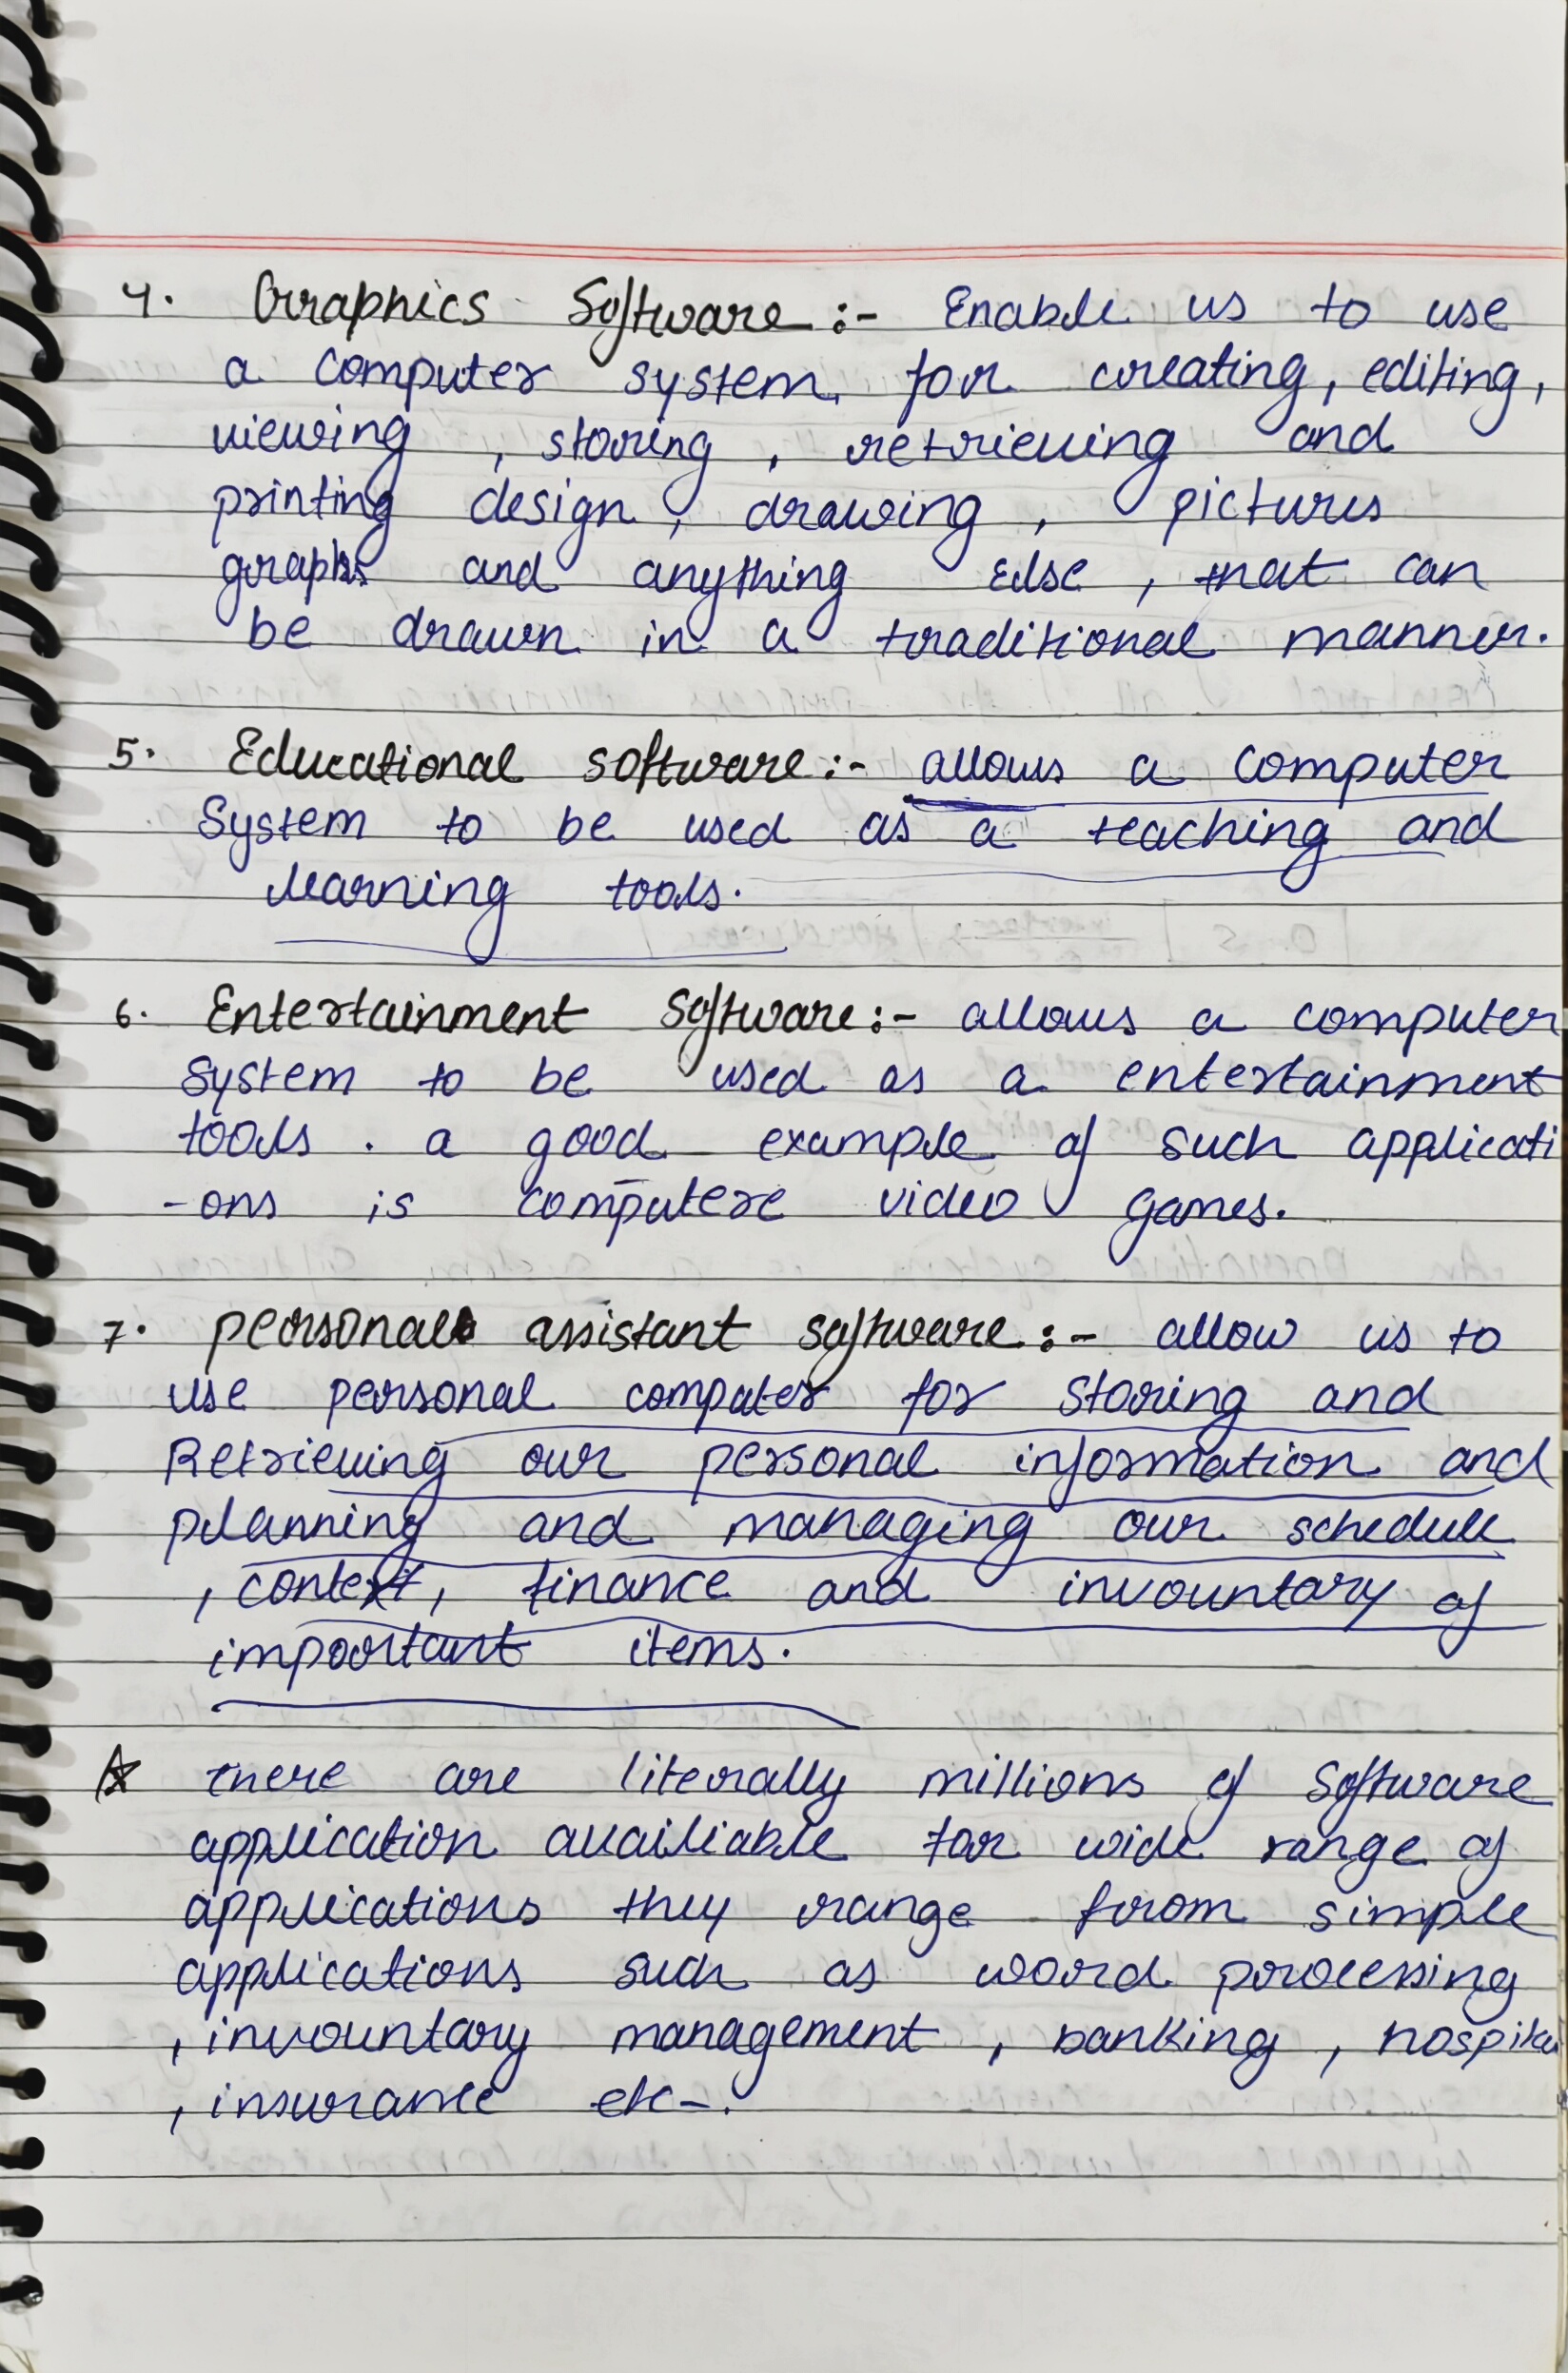 4. Graphics Software :- Enable us to use
a computer system for creating, editing,
viewing , storing , retrieving and
printing design , drawing , pictures
graphs and anything else , that can
be drawn in a traditional manner.
5. Educational software :- allows a computer
System to be used as a teaching and
learning tools.
6. Entertainment Software :- allows a computer
system to be used as a entertainment
tools . a good example of such applicati
-ons is computere video games.
7. personal assistant software :- allow us to
use personal computer for storing and
Retrieving our personal information and
planning and managing our schedule
, context, finance and invountary of
important items.
☆ there are literally millions of Software
application availiable for wide range of
applications they range from simple
applications such as word processing
, invountary management , banking ,
, insurance etc-.